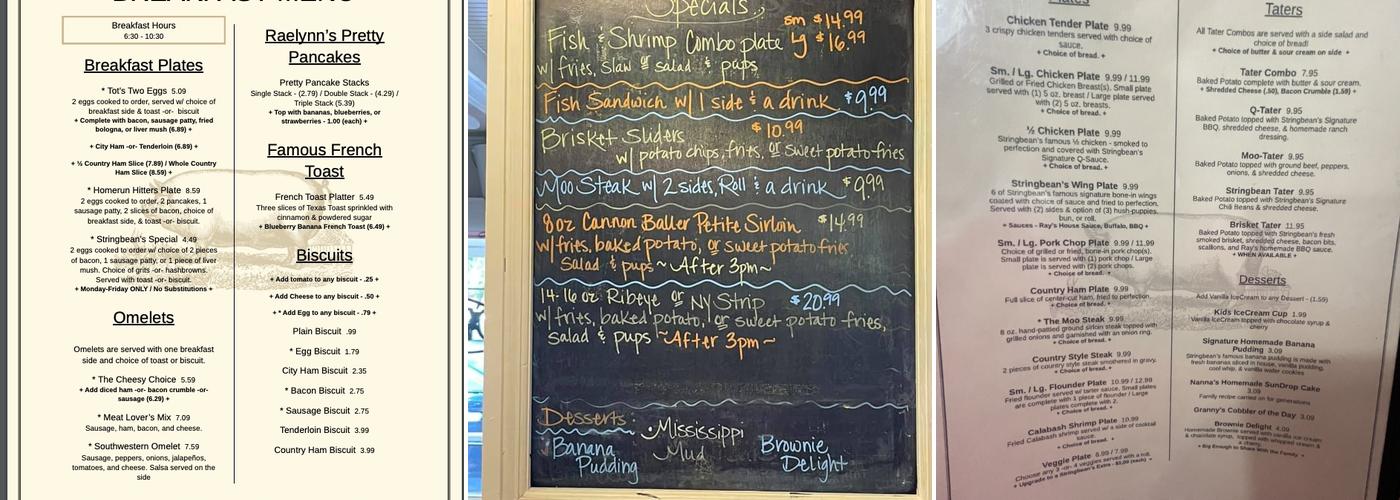 BREAKFAST MENU
Breakfast Hours
6:30 - 10:30
Breakfast Plates
* Tot's Two Eggs 5.09
2 eggs cooked to order, served w/ choice of
breakfast side & toast -or- biscuit
+ Complete with bacon, sausage patty, fried
bologna, or liver mush (6.89) +
+ City Ham -or- Tenderloin (6.89) +
+ ½ Country Ham Slice (7.89) / Whole Country
Ham Slice (8.59) +
* Homerun Hitters Plate 8.59
2 eggs cooked to order, 2 pancakes, 1
sausage patty, 2 slices of bacon, choice of
breakfast side, & toast -or- biscuit.
* Stringbean's Special 4.49
2 eggs cooked to order w/ choice of 2 pieces
of bacon, 1 sausage patty, or 1 piece of liver
mush. Choice of grits -or- hashbrowns.
Served with toast -or- biscuit.
+ Monday-Friday ONLY / No Substitutions +
Omelets
Omelets are served with one breakfast
side and choice of toast or biscuit.
* The Cheesy Choice 5.59
+ Add diced ham -or- bacon crumble -or-
sausage (6.29) +
* Meat Lover's Mix 7.09
Sausage, ham, bacon, and cheese.
* Southwestern Omelet 7.59
Sausage, peppers, onions, jalapeños,
tomatoes, and cheese. Salsa served on the
side
Raelynn's Pretty
Pancakes
Pretty Pancake Stacks
Single Stack - (2.79) / Double Stack - (4.29) /
Triple Stack (5.39)
+ Top with bananas, blueberries, or
strawberries - 1.00 (each) +
Famous French
Toast
French Toast Platter 5.49
Three slices of Texas Toast sprinkled with
cinnamon & powdered sugar
+ Blueberry Banana French Toast (6.49) +
Biscuits
+ Add tomato to any biscuit - .25 +
+ Add Cheese to any biscuit - .50 +
+ * Add Egg to any biscuit - .79 +
Plain Biscuit .99
* Egg Biscuit 1.79
City Ham Biscuit 2.35
* Bacon Biscuit 2.75
* Sausage Biscuit 2.75
Tenderloin Biscuit 3.99
Country Ham Biscuit 3.99
Specials
Fish & Shrimp Combo plate sm $14.99
Lg $16.99
w/ fries, Slaw or salad & pups
Fish Sandwich w/ 1 side & a drink $9.99
Brisket Sliders $10.99
w/ potato chips, fries, or sweet potato fries
Moo Steak w/ 2 sides, Roll & a drink $9.99
8oz Cannon Baller Petite Sirloin $14.99
w/ fries, baked potato, or sweet potato fries
Salad & pups ~ After 3pm ~
14-16 oz Ribeye or NY Strip $20.99
w/ fries, baked potato, or sweet potato fries,
Salad & pups ~ After 3pm ~
Desserts:
Banana Pudding
Mississippi Mud
Brownie Delight
Plates
Chicken Tender Plate 9.99
3 crispy chicken tenders served with choice of
sauce.
+ Choice of bread. +
Sm. / Lg. Chicken Plate 9.99 / 11.99
Grilled or Fried Chicken Breast(s). Small plate
served with (1) 5 oz. breast / Large plate served
with (2) 5 oz. breasts.
+ Choice of bread. +
½ Chicken Plate 9.99
Stringbean's famous ½ chicken - smoked to
perfection and covered with Stringbean's
Signature Q-Sauce.
+ Choice of bread. +
Stringbean's Wing Plate 9.99
6 of Stringbean's famous signature bone-in wings
coated with choice of sauce and fried to perfection.
Served with (2) sides & option of (3) hush-puppies,
bun, or roll.
+ Sauces - Ray's House Sauce, Buffalo, BBQ +
Sm. / Lg. Pork Chop Plate 9.99 / 11.99
Choice of grilled or fried, bone-in pork chop(s).
Small plate is served with (1) pork chop / Large
plate is served with (2) pork chops.
+ Choice of bread. +
Country Ham Plate 9.99
Full slice of center-cut ham, fried to perfection.
+ Choice of bread. +
* The Moo Steak 9.99
8 oz. hand-pattied ground sirloin steak topped with
grilled onions and garnished with an onion ring.
+ Choice of bread. +
Country Style Steak 9.99
2 pieces of country style steak smothered in gravy.
+ Choice of bread. +
Sm. / Lg. Flounder Plate 10.99 / 12.99
Fried flounder served w/ tarter sauce. Small plates
are complete with 1 piece of flounder / Large
plates complete with 2.
+ Choice of bread. +
Calabash Shrimp Plate 10.99
Fried Calabash shrimp served w/ a side of cocktail
sauce.
+ Choice of bread. +
Veggie Plate 6.99 / 7.99
Choose any 3 -or- 4 veggies served with a roll.
Taters
All Tater Combos are served with a side salad and
choice of bread!
+ Choice of butter & sour cream on side +
Tater Combo 7.95
Baked Potato complete with butter & sour cream.
+ Shredded Cheese (.50), Bacon Crumble (1.59) +
Q-Tater 9.95
Baked Potato topped with Stringbean's Signature
BBQ, shredded cheese, & homemade ranch
dressing.
Moo-Tater 9.95
Baked Potato topped with ground beef, peppers,
onions, & shredded cheese.
Stringbean Tater 9.95
Baked Potato topped with Stringbean's Signature
Chili Beans & shredded cheese.
Brisket Tater 11.95
Baked Potato topped with Stringbean's fresh
smoked brisket, shredded cheese, bacon bits,
scallions, and Ray's homemade BBQ sauce.
+ WHEN AVAILABLE +
Desserts
Add Vanilla IceCream to any Dessert - (1.59)
Kids IceCream Cup 1.99
Vanilla IceCream topped with chocolate syrup &
cherry
Signature Homemade Banana
Pudding 3.09
Stringbean's famous banana pudding is made with
fresh bananas sliced in house, vanilla pudding,
cool whip, & vanilla wafer cookies
Nanna's Homemade SunDrop Cake
3.09
Family recipe carried on for generations
Granny's Cobbler of the Day 3.09
Brownie Delight 4.09
Homemade Brownie served with vanilla ice cream
& chocolate syrup, topped with whipped cream &
a cherry.
+ Big Enough to Share With the Family +